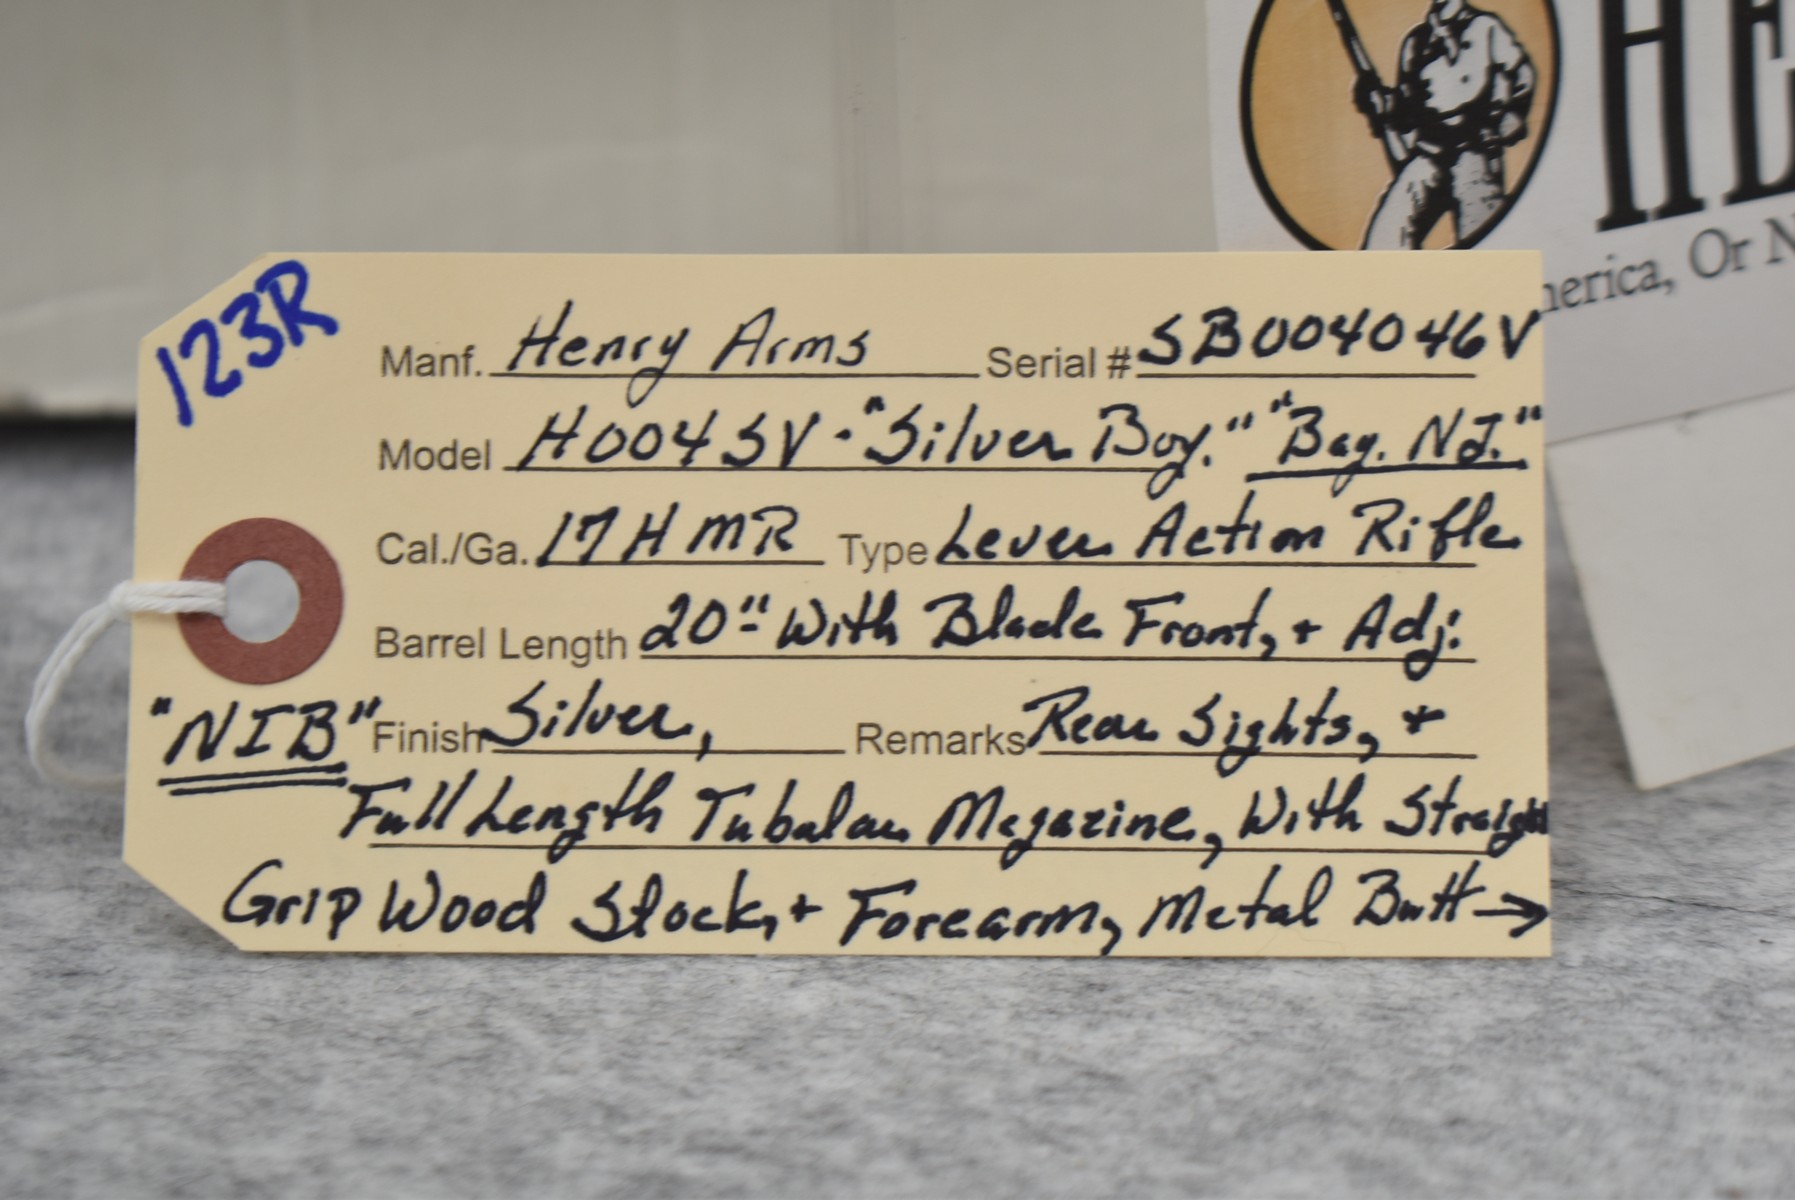 HE
merica, Or N
123R
Manf. Henry Arms Serial # SB004046V
Model H004SV - "Silver Boy." "Bay. NJ."
Cal./Ga. 17 HMR Type Lever Action Rifle
Barrel Length 20" With Blade Front, + Adj.
"NIB" Finish Silver, Remarks Rear Sights, +
Full Length Tubular Magazine, With Straight
Grip Wood Stock, + Forearm, Metal Butt →